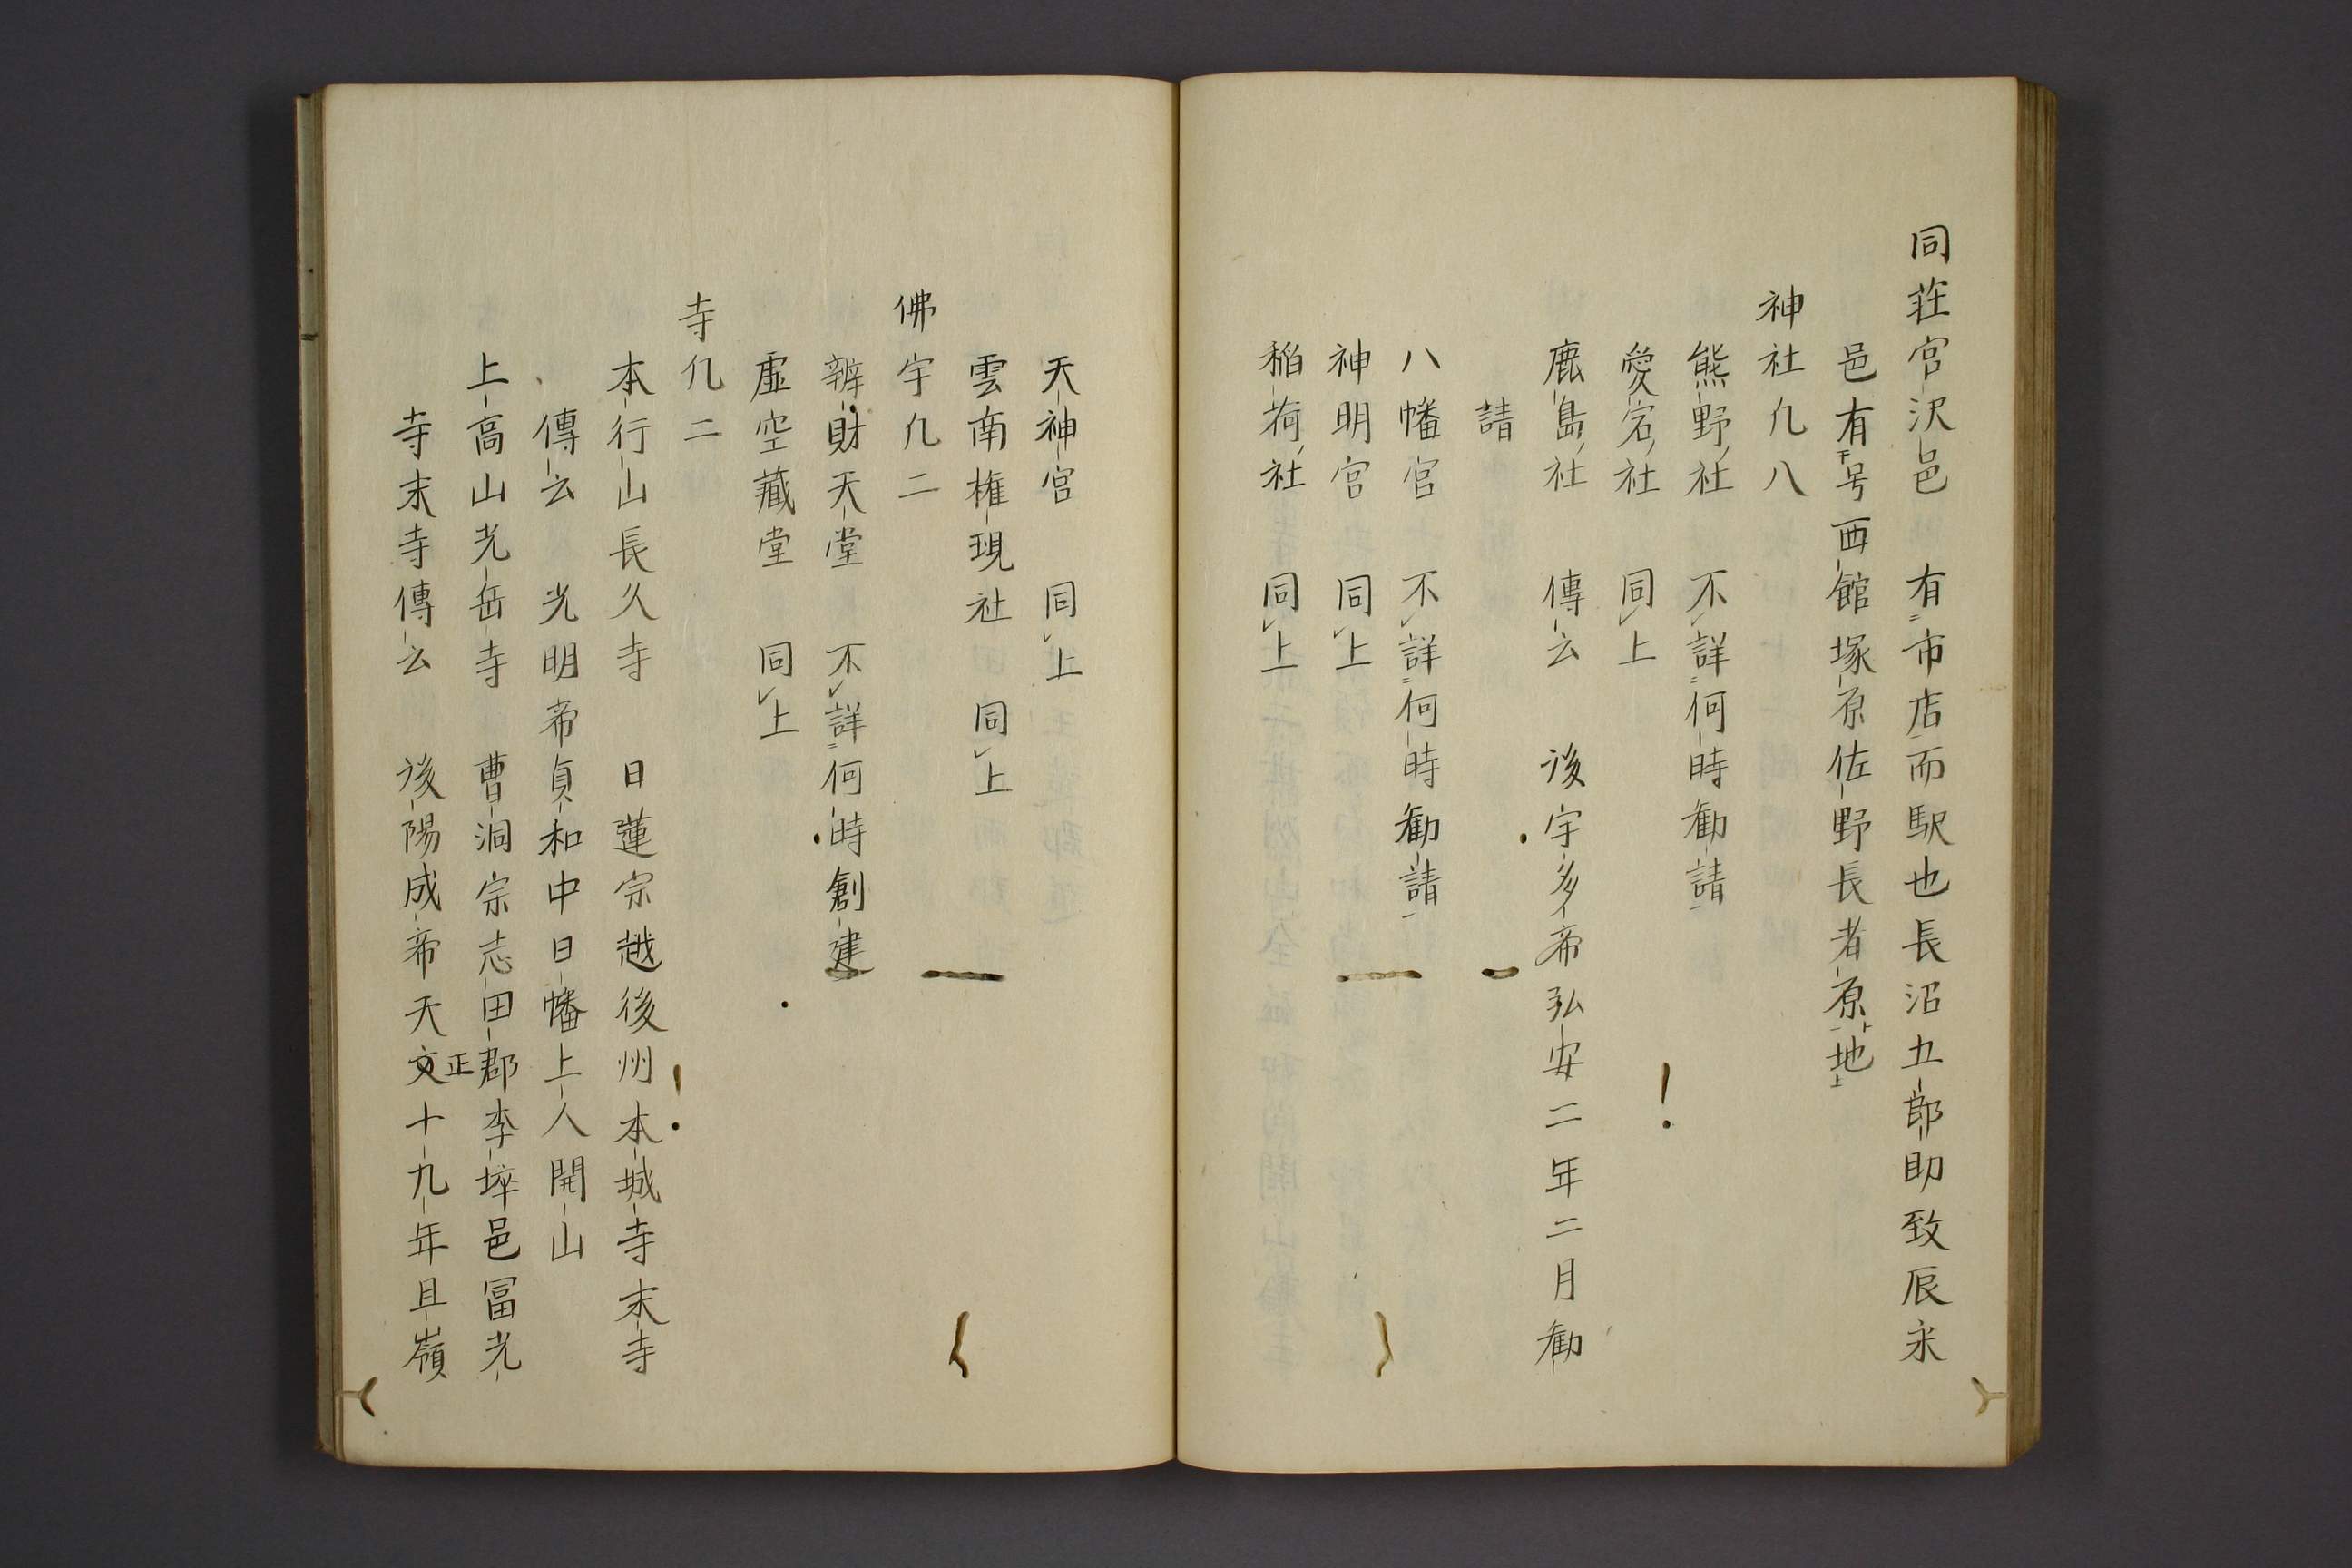 同荘宮沢邑　有市店而駅也長沼五郎助致辰米
邑有号西館塚原佐野長者原地
神社凡八
熊野社　不詳何時勧請
愛宕社　同上
鹿島社　傳云　後宇多帝弘安二年二月勧
請
八幡宮　不詳何時勧請
神明宮　同上
稲荷社　同上
天神宮　同上
雲南権現社　同上
佛宇凡二
辨財天堂　不詳何時創建
虚空藏堂　同上
寺凡二
本行山長久寺　日蓮宗越後州本城寺末寺
傳云　光明帝貞和中日幡上人開山
上高山光岳寺　曹洞宗志田郡李埣邑冨光
寺末寺傳云　後陽成帝天文正十九年且嶺